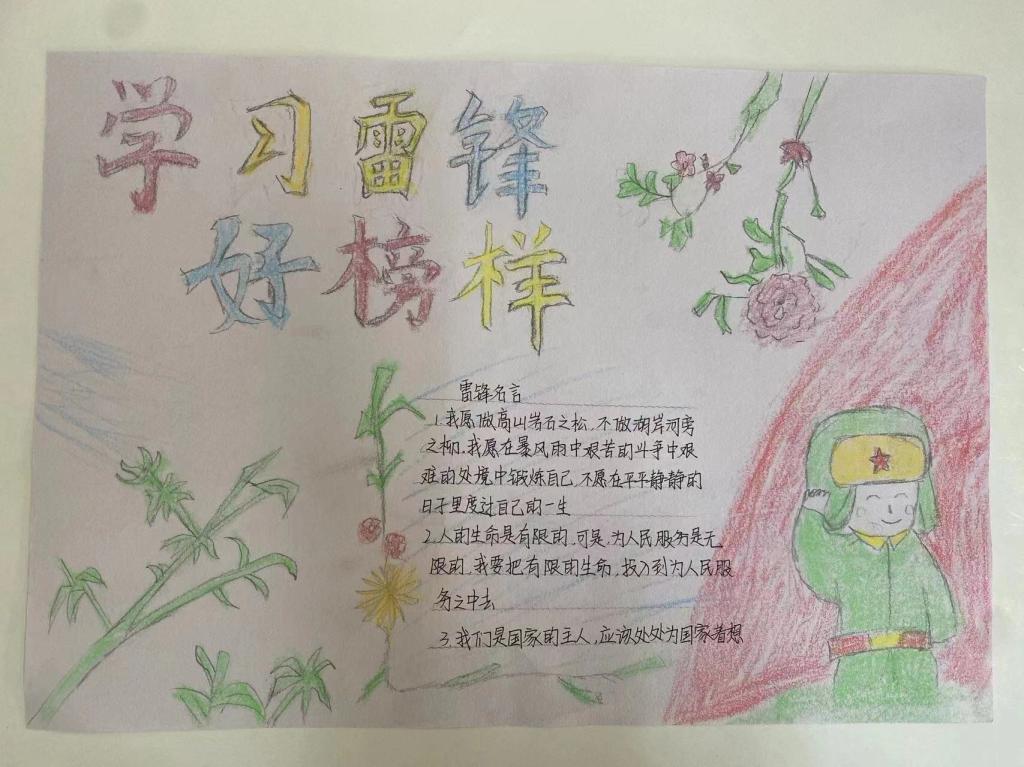 学习雷锋
好榜样
雷锋名言
1.我愿做高山岩石之松,不做湖岸河旁
之柳.我愿在暴风雨中艰苦的斗争中艰
难的处境中锻炼自己,不愿在平平静静的
日子里度过自己的一生
2.人的生命是有限的,可是,为人民服务是无
限的,我要把有限的生命,投入到为人民服
务之中去
3.我们是国家的主人,应该处处为国家着想